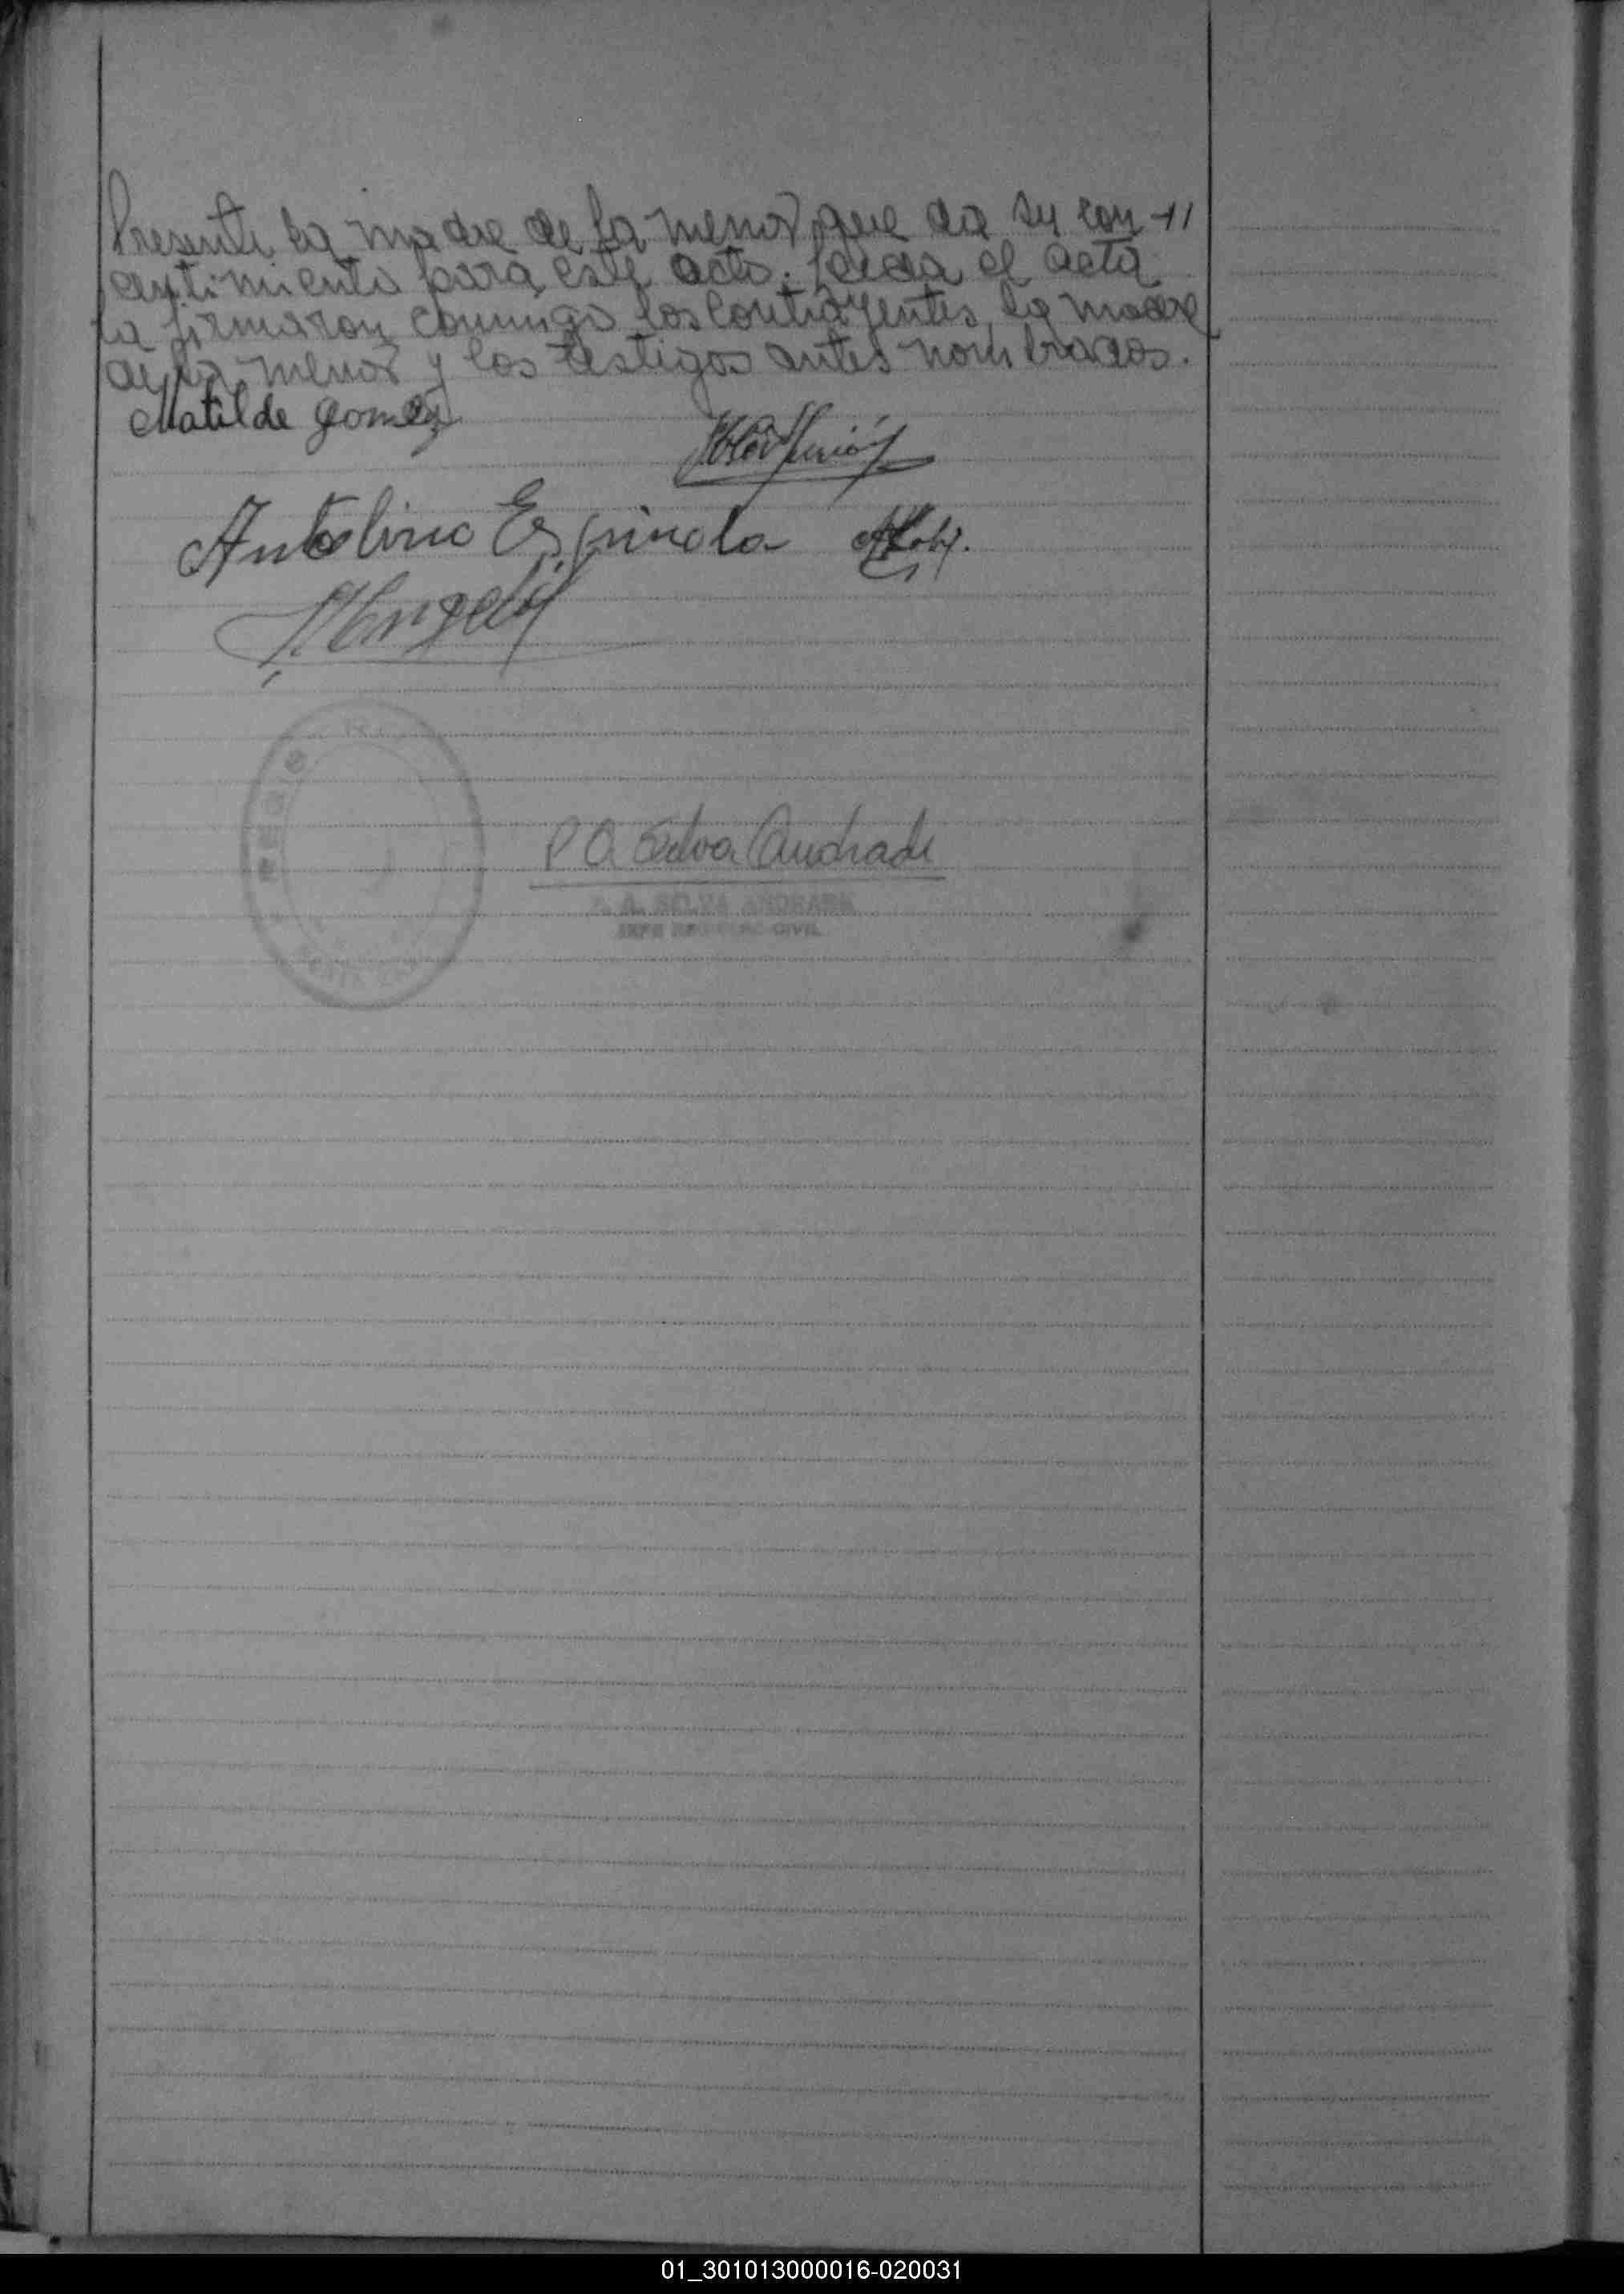 Presente la madre de la menor que da su con -//
sentimiento para este acto. Leida el acta
la firmaron conmigo los contrayentes, la madre
de la menor y los testigos antes nombrados.
Matilde Gomez
Antolino Espinola
P A Silva Andrade
P. A. SILVA ANDRADE
JEFE REGISTRO CIVIL
01_301013000016-020031